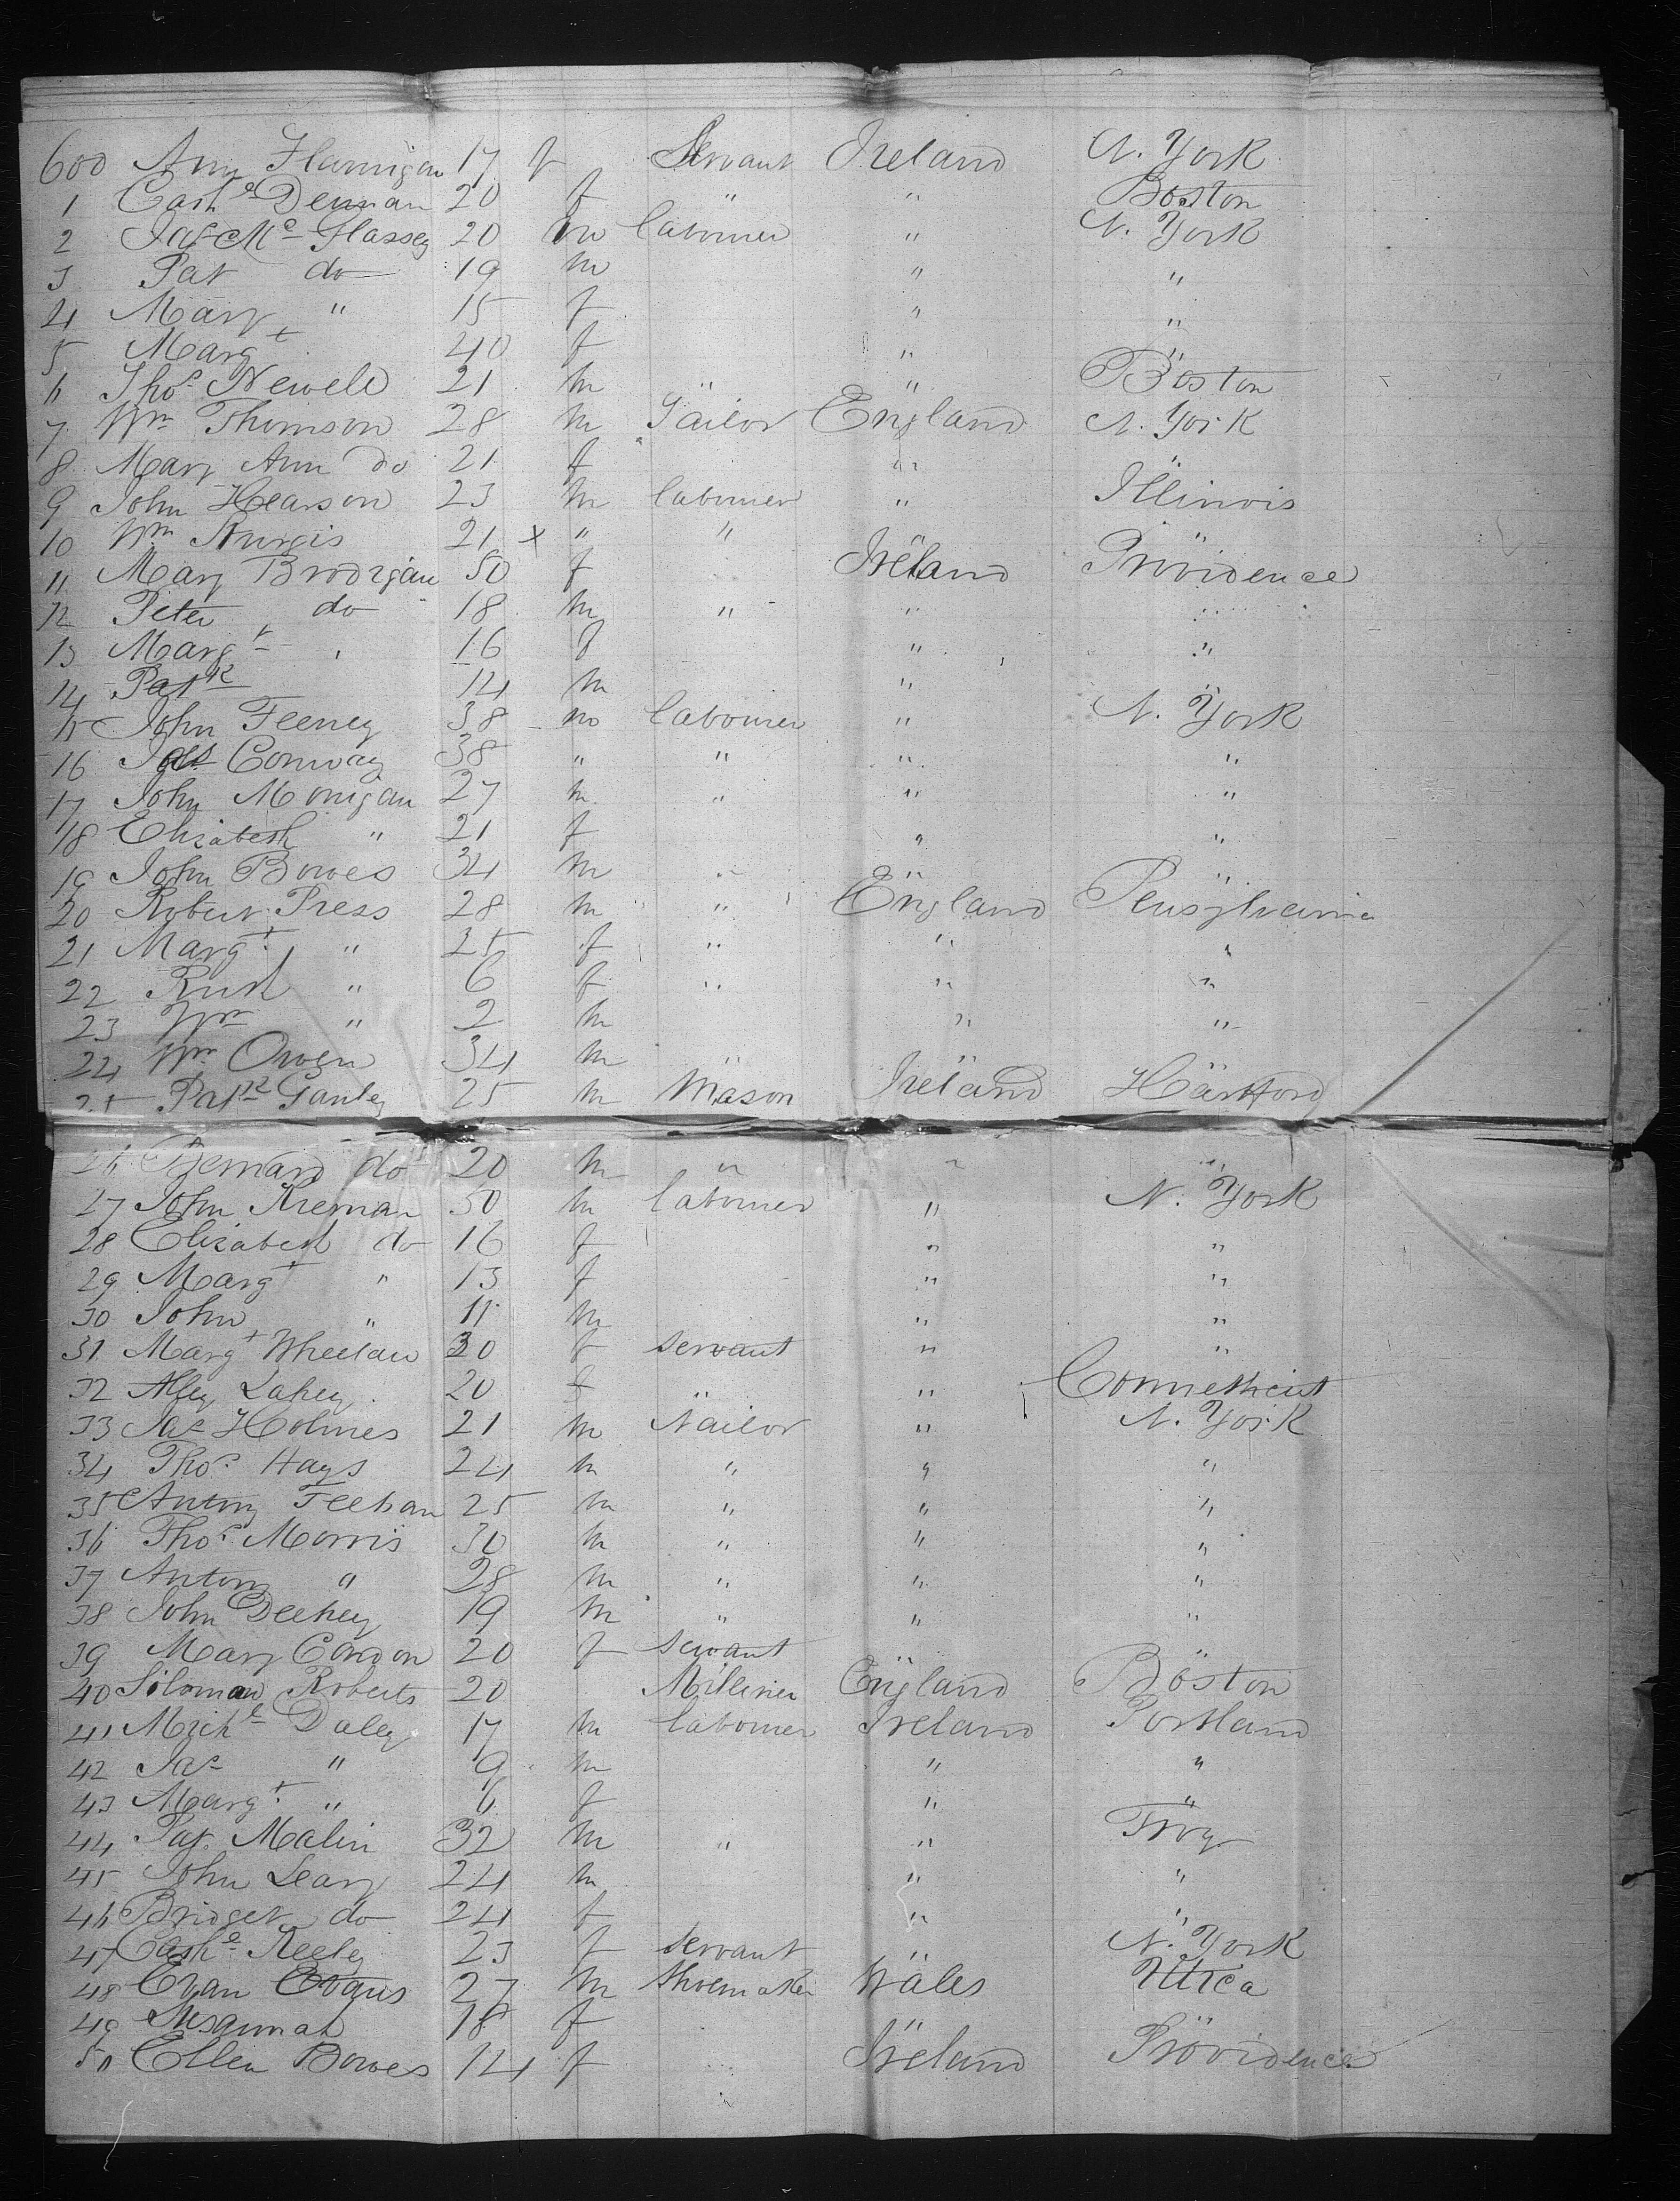 600 Amy Flannigan 17 f Servant Ireland N. York
1 Cathe Dennan 20 f " " Boston
2 Jas Mc Glassey 20 m labourer " N. York
3 Pat do 19 m " "
4 Mary " 15 f " "
5 Margt 40 f " "
6 Thos Newell 21 m " " Boston
7 Wm Thomson 28 m Tailor England N. York
8 Mary Ann do 21 f " "
9 John Hearson 23 m labourer " Illinois
10 Wm Sturgis 21 x " " "
11 Mary Brodigan 50 f Ireland Providence
12 Peter do 18 m " " "
13 Margt " 16 f " "
14 Patk 14 m " "
15 John Feeney 38 m labourer " N. York
16 Jas Conway 38 " " " "
17 John Monigan 27 m " " "
18 Elizabeth " 21 f " "
19 John Bowes 34 m " " "
20 Robert Press 28 m " England Pensylvania
21 Margt " 25 f " " "
22 Ruth " 6 f " " "
23 Wm " 2 m " "
24 Wm Owen 34 m " " "
25 Patk Ganley 25 m Mason Ireland Hartford
26 Bernard do 20 m " " "
27 John Kiernan 50 m labourer " N. York
28 Elizabeth do 16 f " "
29 Margt " 13 f " "
30 John " 11 m " "
31 Margt Wheelan 30 f servant " "
32 Lahey 20 f " " Connethicut
33 Jas Holmes 21 m Nailor " N. York
34 Thos Hays 24 m " " "
35 Antony Feehan 25 m " " "
36 Thos Morris 30 m " " "
37 Antony " 28 m " " "
38 John Deehey 19 m " " "
39 Mary Condon 20 f servant " "
40 Soloman Roberts 20 Milliner England Boston
41 Michl Daley 17 m labourer Ireland Portland
42 Jas " 9 m " "
43 Margt " 6 f " "
44 Pat Malin 32 m " " Troy
45 John Leary 24 m " "
46 Bridget do 24 f " "
47 Cathe Keeley 23 f servant N. York
48 Evan Evans 27 m Shoemaker Wales Utica
49 Susannah 18 f " "
50 Ellen Bowes 14 f Ireland Providence